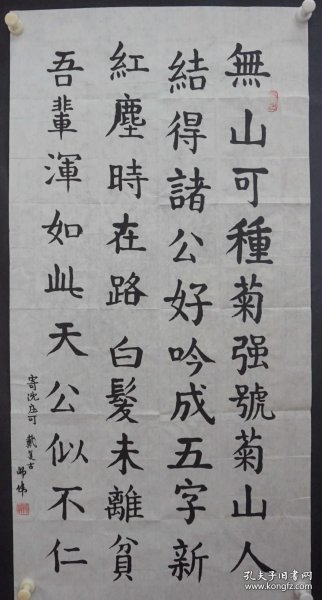 無山可種菊强號菊山人
結得諸公好吟成五字新
紅塵時在路白髮未離貧
吾輩渾如此天公似不仁
寄沈庄可 戴复古
孔夫子旧书网